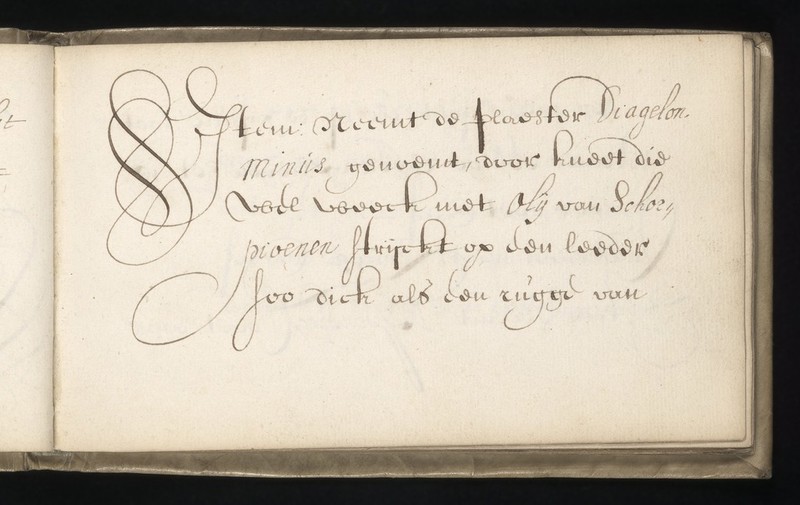 Item: Neemt de plaester Diagelon-
minus genoemt, door kneet die
wel weeck met Olij van Schor„
pioenen strijckt op een leeder
soo dick als een rugge van